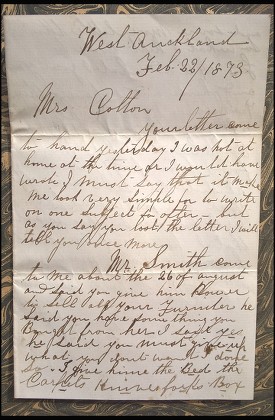 West Auckland
Feb 22/1873
Mrs Cotton
Your letter come
to hand yesterday I was not at
home at the time or I would have
wrote I must say that it makes
me look very simple for to write
on one subject so often but
as you say you lost the letter I will
tell you once more
Mr Smith come
to me about the 26 of august
and said you give him Power
to sell all your furnider he
said you have some thing you
Bought from her I said yes
he said you must give up
what you dont want I done
so I give hime the Bed the
Carpets Knives forks Box